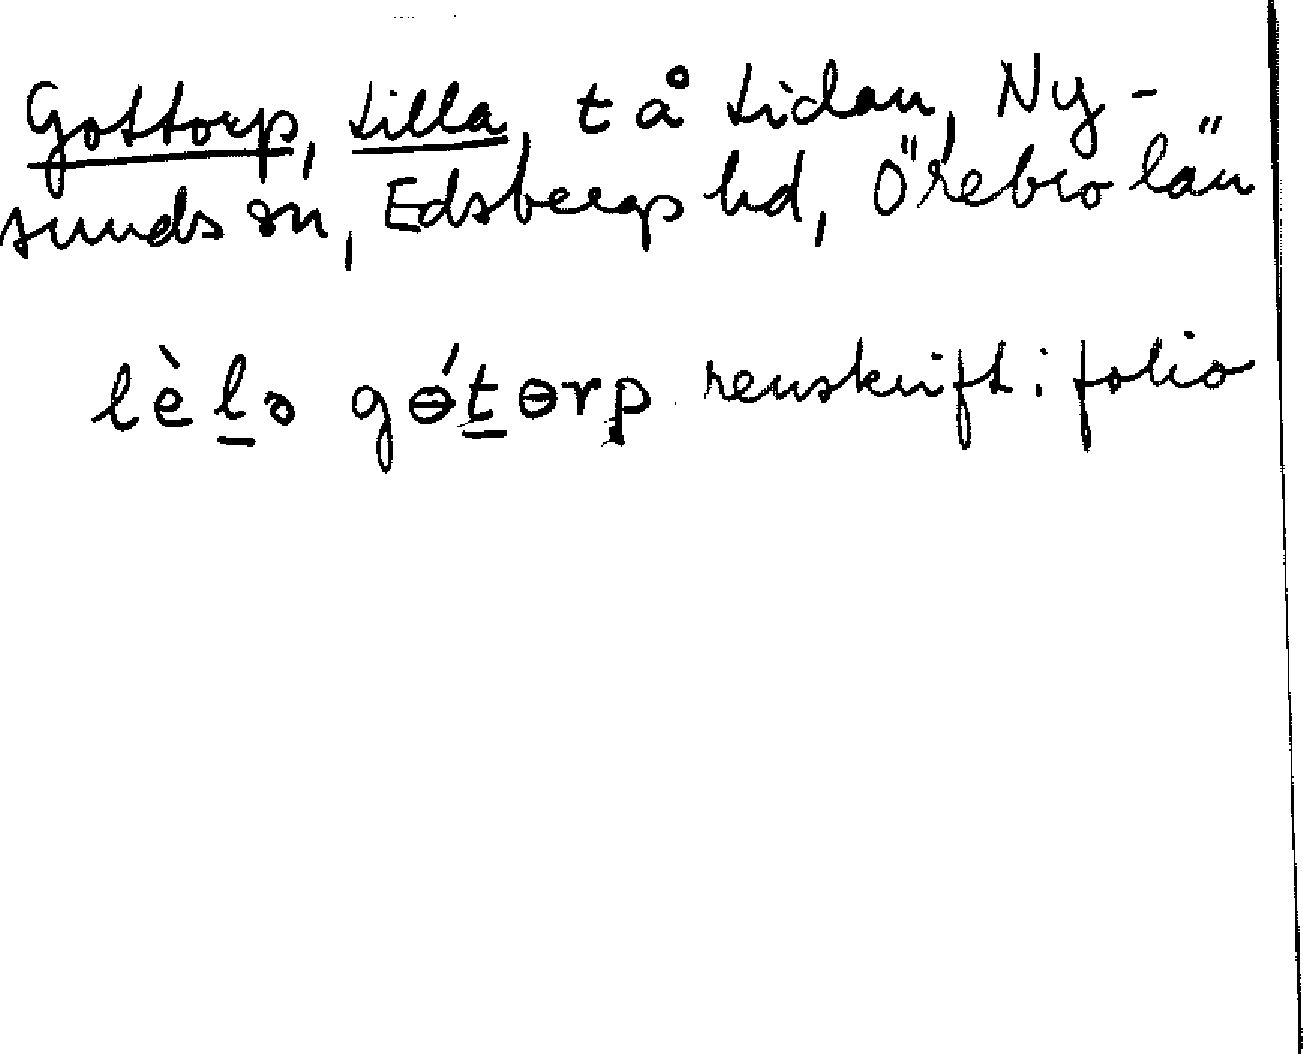 Gottorp, Lilla, t å Lidan, Ny-
sunds sn, Edsbergs hd, Örebro län
lèḻə gɵ́ṯɵrp renskrift i folio